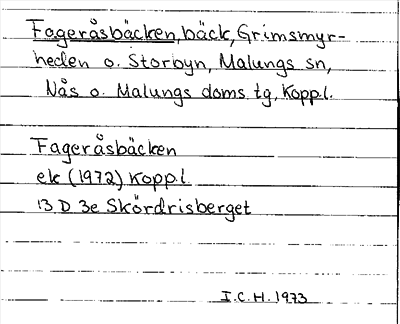 Fageråsbäcken, bäck, Grimsmyr-
heden o. Storbyn, Malungs sn,
Nås o. Malungs doms. tg, Koppl.
Fageråsbäcken
ek (1972) Koppl
13 D 3e Skördrisberget
I.C.H. 1973